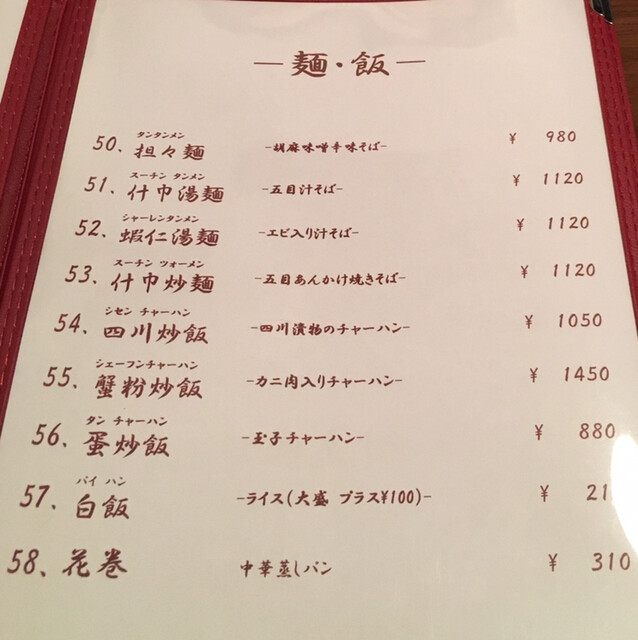 ―麺・飯―
タンタンメン
50、担々麺 -胡麻味噌辛味そば- ¥ 980
スーチン タンメン
51、什巾湯麺 -五目汁そば- ¥ 1120
シャーレンタンメン
52、蝦仁湯麺 -エビ入り汁そば- ¥ 1120
スーチン ツォーメン
53、什巾炒麺 -五目あんかけ焼きそば- ¥ 1120
シセン チャーハン
54、四川炒飯 -四川漬物のチャーハン- ¥ 1050
シェーフンチャーハン
55、蟹粉炒飯 -カニ肉入りチャーハン- ¥ 1450
タン チャーハン
56、蛋炒飯 -玉子チャーハン- ¥ 880
パイ ハン
57、白飯 -ライス(大盛 プラス¥100)- ¥ 21
58、花巻 中華蒸しパン ¥ 310